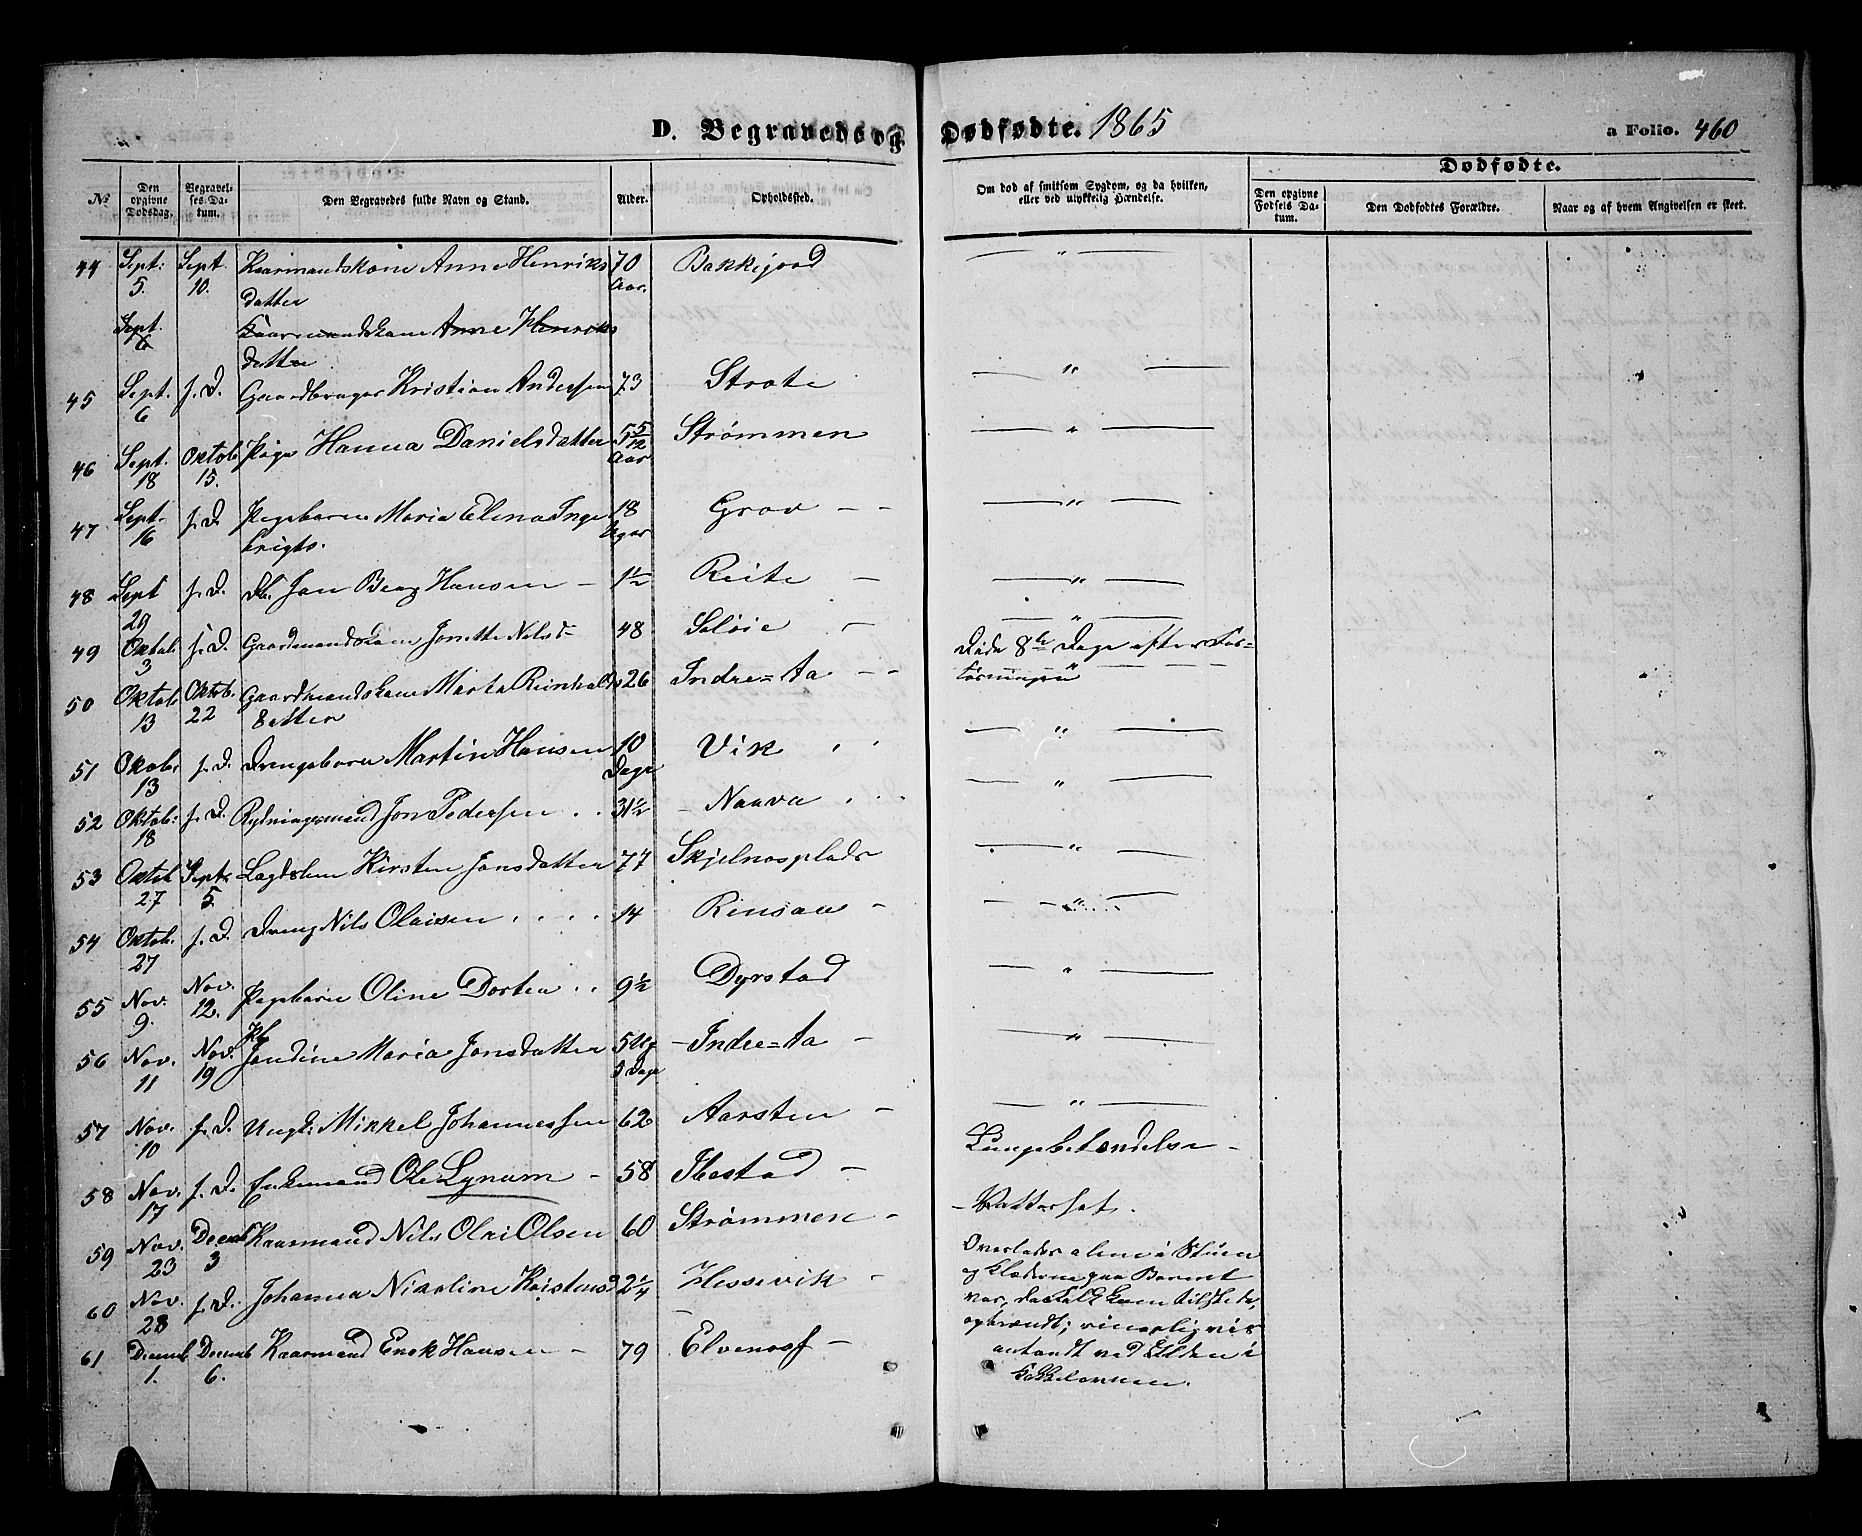 D. Begravede og Dødfødte. 1865
a Folio. 460
Dødfødte.
No Den opgivne Dødsdag. Begravelses-Datum. Den Begravedes fulde Navn og Stand. Alder. Opholdsted. Om død af smitsom Sygdom, og da hvilken, eller ved ulykkelig Hændelse. Den opgivne Fødsels Datum. Den Dødfødtes Forældre. Naar og af hvem Angivelsen er skeet.
44 Sept: 5. Sept. 10. Kaarmandskone Anne Henriks 70 Bakkejord — " —
datter Aar.
Sept. 6 Kaarmandskone Anne Henriks
datter
45 Sept. 6 s. D. Gaardbruger Kristian Andersen 73 Strate — " —
46 Sept. 18 Oktob. 15. Pige Hanna Danielsdatter 5 5/12 Aar Strømmen — " —
47 Sept. 16 s. D. Pigebarn Maria Elena Inge 18 Grov — " —
brigts.
48 Sept 29 s. D. Jan Berg Hansen — 1½ Reite — — " —
49 Oktob. 3 s. D. Gaardmandskone Jonette Nilsd. 48 Seløie — — " —
50 Oktob. 13 Oktob. 22 Gaardmandskone Marta Reinholds 26 Indre=Aa — Døde 8de Dage efter For=
datter løsningen
51 Oktob. 13 s. D. Drengebarn Martin Hansen 10 Dage Vik — " —
52 Oktob: 18 s. D. Rydningsmand Jon Pedersen 31½ Naava — " —
53 Oktob. 27 Sept. 5. Lægdslem Kirsten Jonsdatter 77 Skjelnesplads — " —
54 Oktob. 27 s. D. Dreng Nils Olaisen 14 Rensaa — — " —
55 Nov. 9. Nov. 12. Pigebarn Oline Dortea 9½ Dyrstad — " —
56 Nov. 11 Nov. 19 Pbg Jondine Maria Jonsdatter 5 Ug 3 Dage Indre=Aa — — " —
57 Nov. 10 s. D. Ungk: Mikkel Johannessen 62 Aarsten — — " —
58 Nov. 17 s. D. Enkemand Ole Lynum — 58 Ibestad — Lungebetændelse —
59 Nov. 23 Decemb 3 Kaarmand Nils Olai Olsen 60 Strømmen — — Vattersot.
60 Nov. 28 s. D. Johanna Nikoline Kristensd 2¼ Hessevik — Overlades alene i Stuen
og Klæderne paa Barnet
var, da Folk kom tilstede,
opbrændt; rimeligvis
antændt ved Ilden i
Kakkelovnen.
61 Decemb 1. Decemb 6. Kaarmand Enok Hansen — 79 Elvenæs —